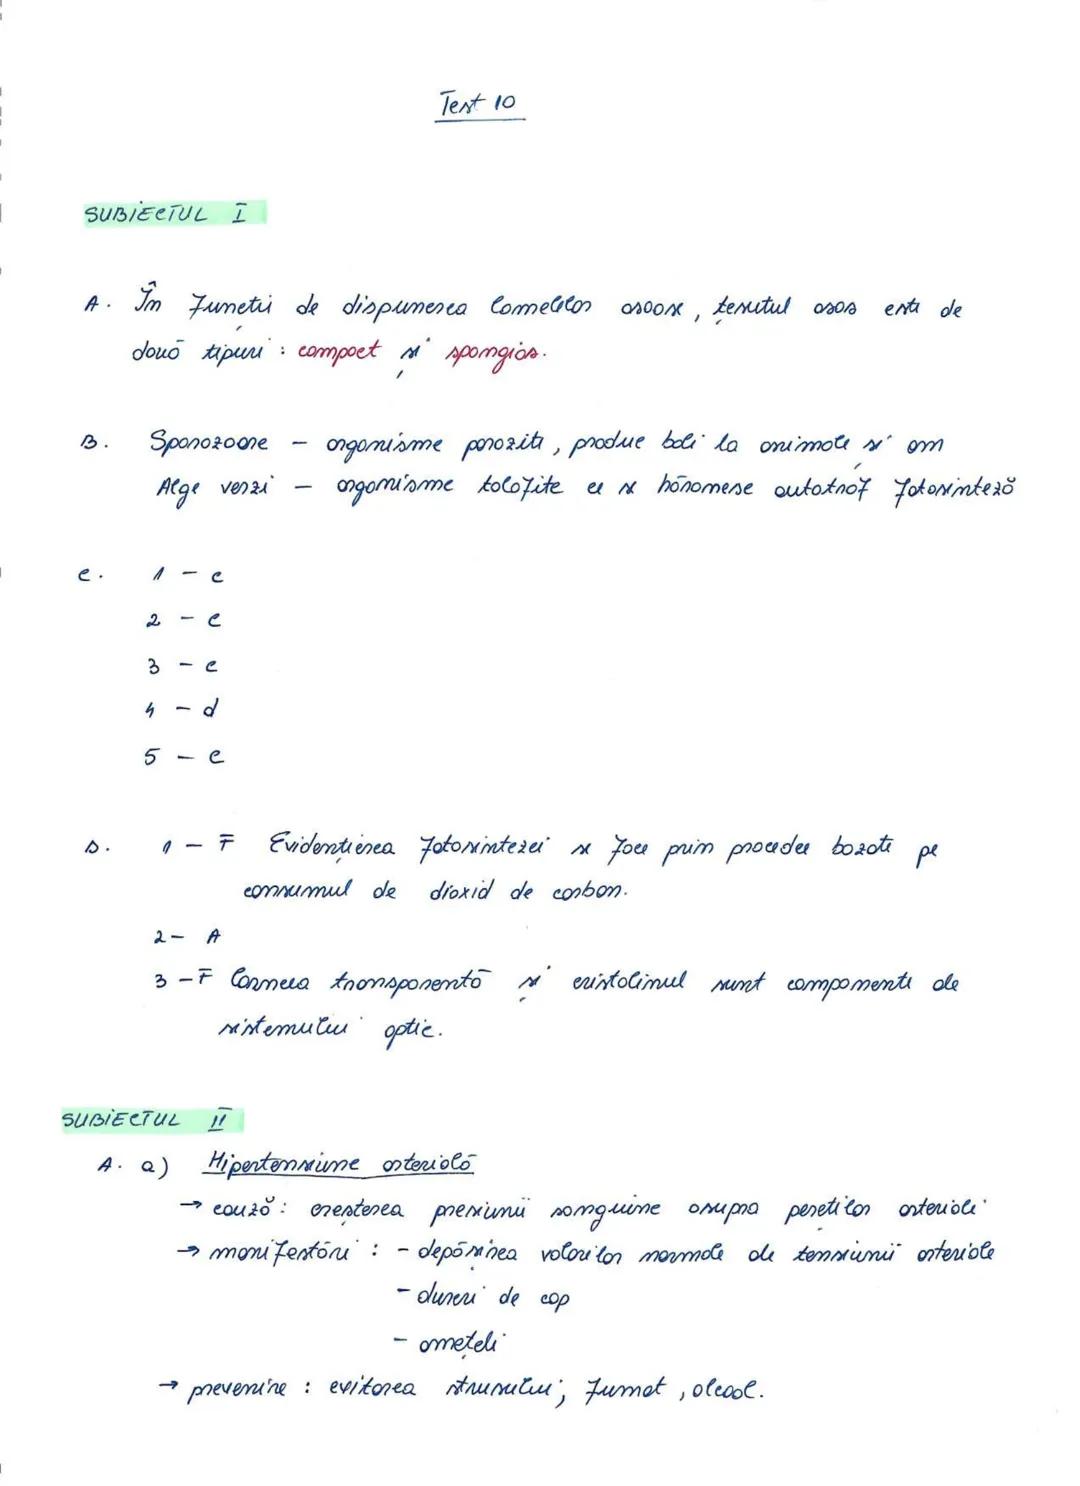 Test 10
SUBIECTUL I
A. În funcții de dispunerea lamelelor osoase, țesutul osos este de
două tipuri: compact și spongios.
B. Sporozoare - organisme parazite, produc boli la animale și om
Alge verzi - organisme talofite cu hrănire autotrof fotosinteză
C. 1 - c
2 - c
3 - c
4 - d
5 - c
D. 1 - F Evidențierea fotosintezei se face prin procedee bazate pe
consumul de dioxid de carbon.
2 - A
3 - F Corneea transparentă și cristalinul sunt componente ale
sistemului optic.
SUBIECTUL II
A. a) Hipertensiune arterială
→ cauză: creșterea presiunii sanguine asupra pereților arteriali
→ manifestări: - depășirea valorilor normale ale tensiunii arteriale
- dureri de cap
- amețeli
→ prevenire: evitarea stresului, fumat, alcool.